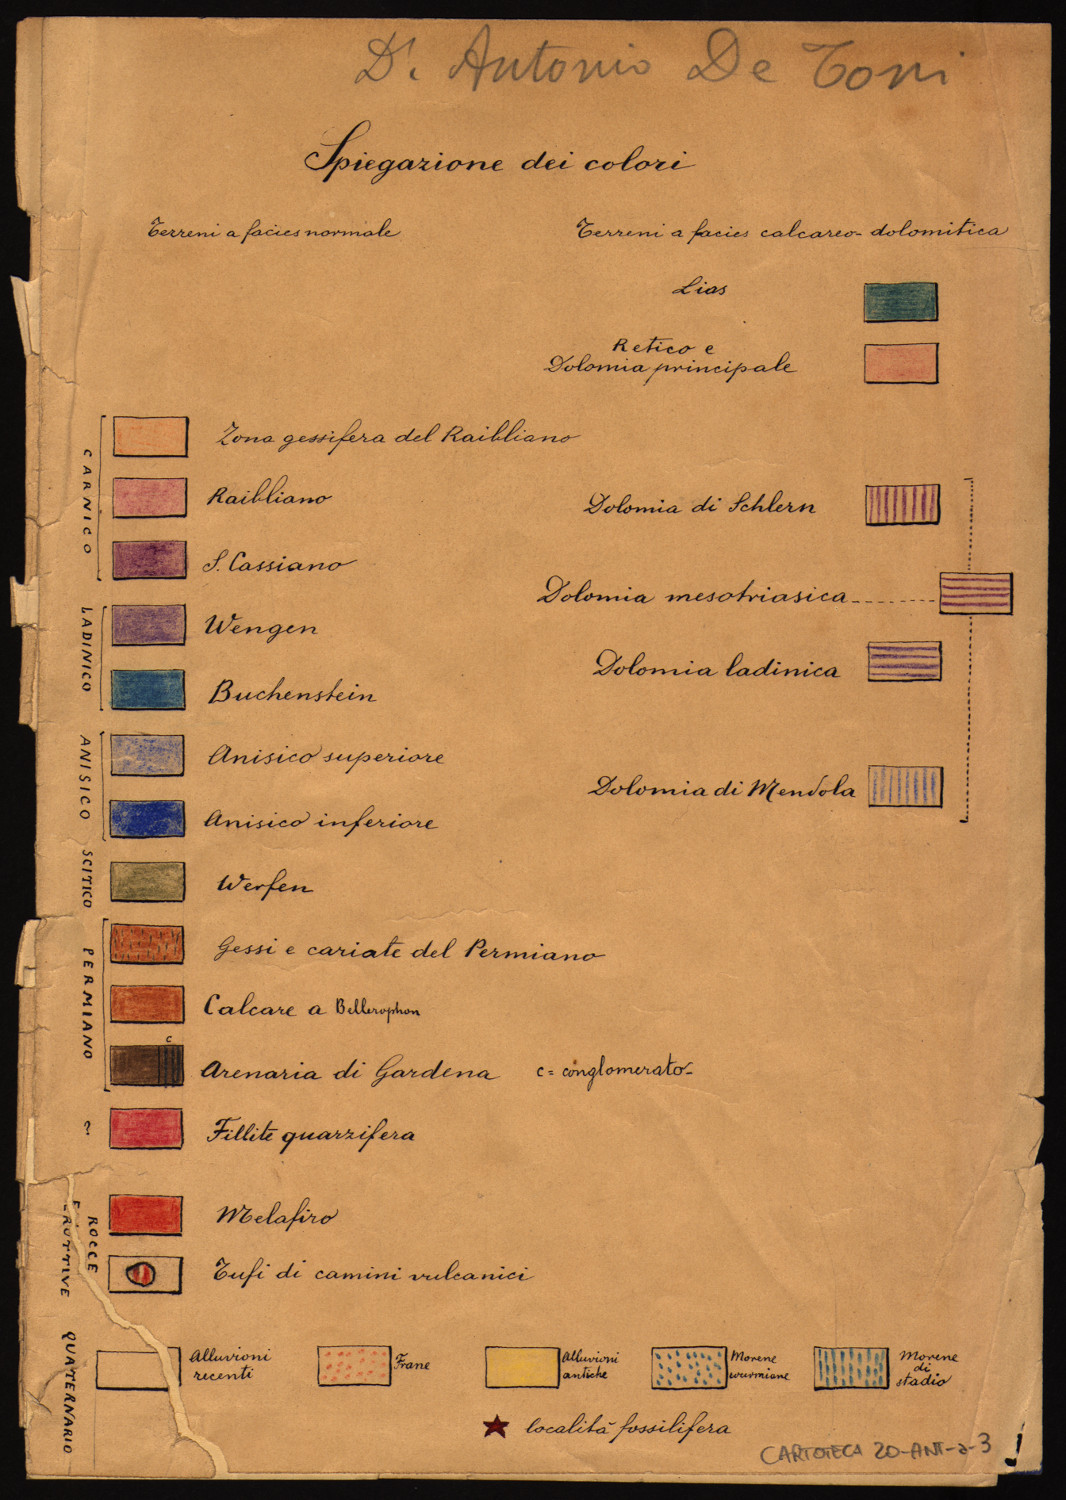 Dr. Antonio De Toni
Spiegazione dei colori
Terreni a facies normale
Terreni a facies calcareo-dolomitica
Lias
Retico e
Dolomia principale
CARNICO
Zona gessifera del Raibliano
Raibliano
S. Cassiano
Dolomia di Schlern
Dolomia mesotriasica
LADINICO
Wengen
Buchenstein
Dolomia ladinica
ANISICO
Anisico superiore
Anisico inferiore
Dolomia di Mendola
SCITICO
Werfen
PERMIANO
Gessi e cariate del Permiano
Calcare a Bellerophon
c
Arenaria di Gardena c = conglomerato-
?
Fillite quarzifera
ROCCE
ERUTTIVE
Melafiro
Tufi di camini vulcanici
QUATERNARIO
Alluvioni
recenti
Frane
Alluvioni
antiche
Morene
wurmiane
Morene
di
stadio
località fossilifera
CARTOTECA 20-ANT-a-3